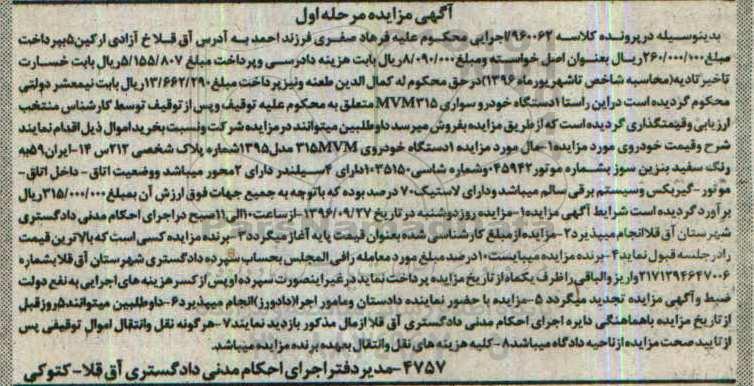 آگهی مزایده مرحله اول
بدینوسیله در پرونده کلاسه ۹۶۰۰۶۲/اجرایی محکوم علیه فرهاد صفری فرزند احمد به آدرس آق قلا خ آزادی ارکین۵بپرداخت
مبلغ۲۶۰/۰۰۰/۰۰۰ریال بابت اصل خواسته ومبلغ۸/۰۹۰/۰۰۰ریال بابت هزینه دادرسی وپرداخت مبلغ ۵/۱۵۵/۸۰۷ریال بابت خسارت
تاخیرتادیه(محاسبه شاخص تاشهریورماه ۱۳۹۶)درحق محکوم له کمال الدین طعنه ونیزپرداخت مبلغ۱۳/۶۶۲/۲۹۰ریال بابت نیمعشر دولتی
محکوم گردیده است دراین راستا ۱دستگاه خودرو سواری MVM۳۱۵ متعلق به محکوم علیه توقیف وپس ازتوقیف توسط کارشناس منتخب
ارزیابی وقیمتگذاری گردیده است که ازطریق مزایده بفروش میرسد داوطلبین میتوانند درمزایده شرکت ونسبت بخرید اموال ذیل اقدام نمایند
شرح وقیمت خودروی مورد مزایده۱-مال مورد مزایده ۱دستگاه خودروی ۳۱۵MVM مدل۱۳۹۵شماره پلاک شخصی ۲۱۲س ۱۴-ایران۵۹به
رنگ سفید بنزین سوز بشماره موتور۰۴۵۹۴۲وشماره شاسی۱۰۳۵۱۵۰دارای ۴سیلندر دارای ۲محور میباشد ووضعیت اتاق - داخل اتاق-
موتور -گیربکس وسیستم برقی سالم میباشد ودارای لاستیک۷۰ درصد بوده که باتوجه به جمیع جهات فوق ارزش آن بمبلغ۳۱۵/۰۰۰/۰۰۰ریال
برآورد گردیده است شرایط آگهی مزایده۱-مزایده روزدوشنبه درتاریخ ۱۳۹۶/۰۹/۲۷-ازساعت۱۰الی۱۱صبح دراجرای احکام مدنی دادگستری
شهرستان آق قلاانجام میپذیرد۲-مزایده ازمبلغ کارشناسی شده بعنوان قیمت پایه آغاز میگردد۳-برنده مزایده کسی است که بالاترین قیمت
رادرجلسه قبول نماید۴-برنده مزایده میبایست۱۰درصد مبلغ مورد معامله رافی المجلس بحساب سپرده دادگستری شهرستان آق قلابشماره
۲۱۷۱۲۹۴۶۴۷۰۰۶واریز والباقی راظرف یکماه از تاریخ مزایده پرداخت نماید درغیراینصورت سپرده اوپس ازکسر هزینه های اجرایی به نفع دولت
ضبط وآگهی مزایده تجدید میگردد ۵-مزایده با حضور نماینده دادستان ومامور اجرا(دادورز)انجام میپذیرد۶-داوطلبین میتوانند۵روزقبل
ازتاریخ مزایده باهماهنگی دایره اجرای احکام مدنی دادگستری آق قلا ازمال مذکور بازدید نمایند۷-هرگونه نقل وانتقال اموال توقیفی پس
ازتایید صحت مزایده ازناحیه دادگاه میباشد۸-کلیه هزینه های نقل وانتقال بعهده برنده مزایده میباشد.
۴۷۵۷-مدیردفتراجرای احکام مدنی دادگستری آق قلا-کتوکی